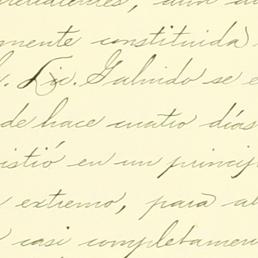 mente constituida
Lic. Galindo se e
de hace cuatro días
istió en un princip
extremo, para a
casi completamen